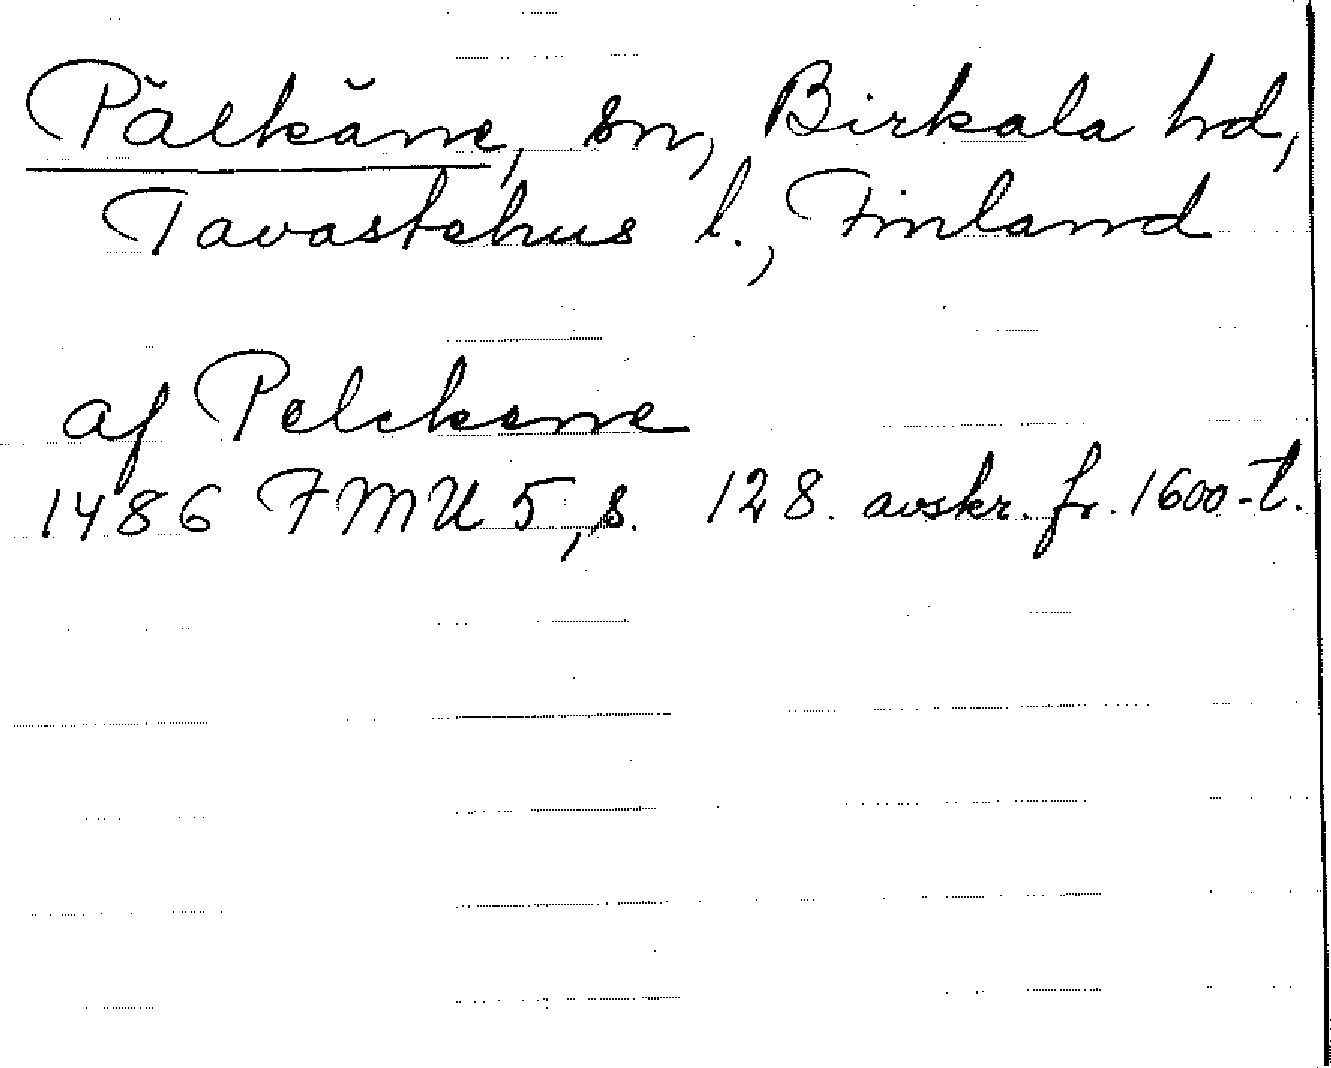 Pälkäne, sn, Birkala hd,
Tavastehus l., Finland
af Pelckene
1486 FMU 5, s. 128. avskr. fr. 1600-t.